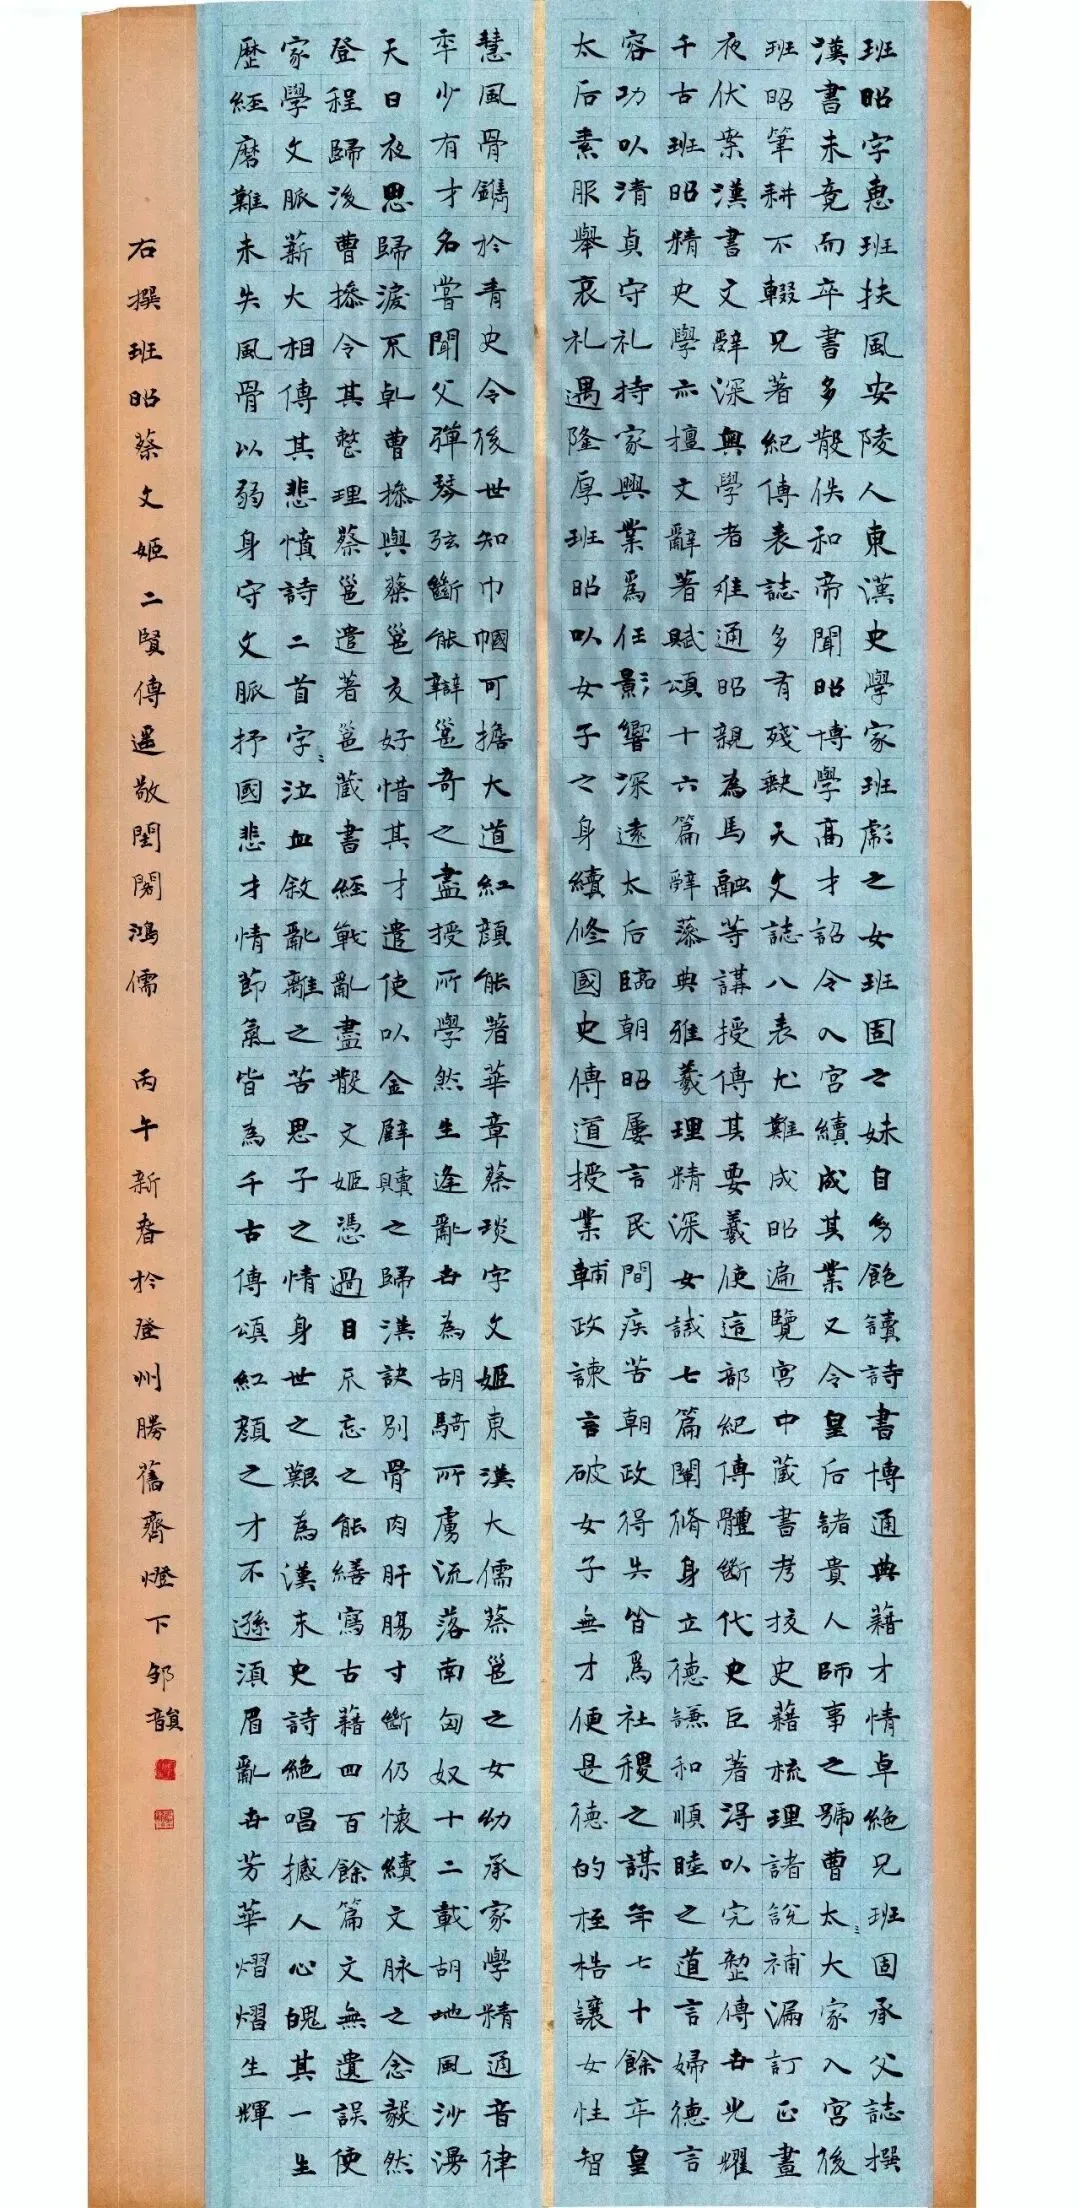 班昭字惠班扶風安陵人東漢史學家班彪之女班固之妹自幼飽讀詩書博通典藉才情卓絶兄班固承父誌撰
漢書未竟而卒書多散佚和帝聞昭博學高才詔令入宮續成其業又令皇后諸貴人師事之號曹太大家入宮後
班昭筆耕不輟兄著紀傳表誌多有殘缺天文誌八表尤難成昭遍覽宮中藏書考校史藉梳理諸説補漏訂正晝
夜伏案漢書文辭深輿學者難通昭親為馬融等講授傳其要義使這部紀傳體斷代史巨著得以完整傳世光耀
千古班昭精史學亦擅文辭著賦頌十六篇辭藻典雅義理精深女誡七篇闡脩身立德謙和順睦之道言婦德言
容功以清貞守礼持家興業爲任影響深遠太后臨朝昭屢言民間疾苦朝政得失皆爲社稷之謀年七十餘卒皇
太后素服舉哀礼遇隆厚班昭以女子之身續修國史傳道授業輔政諫言破女子無才便是德的桎梏讓女性智
慧風骨鐫於青史令後世知巾幗可擔大道紅顔能著華章蔡琰字文姬東漢大儒蔡邕之女幼承家學精通音律
年少有才名嘗聞父彈琴弦斷能辯邕奇之盡授所學然生逢亂世為胡騎所虜流落南匈奴十二載胡地風沙漫
天日夜思歸淚不乾曹操與蔡邕友好惜其才遣使以金璧贖之歸漢訣別骨肉肝腸寸斷仍懷續文脉之念毅然
登程歸後曹操令其整理蔡邕遺著邕藏書經戰亂盡散文姬憑過目不忘之能繕寫古藉四百餘篇文無遺誤使
家學文脈薪火相傳其悲憤詩二首字〻泣血敘亂離之苦思子之情身世之艱為漢末史詩絶唱撼人心魄其一生
歷經磨難未失風骨以弱身守文脈抒國悲才情節氣皆為千古傳頌紅顔之才不遜湏眉亂世芳華熠熠生輝
右撰班昭蔡文姬二賢傳遥敬閨閣鴻儒 丙午新春於登州勝舊齊燈下邹韻